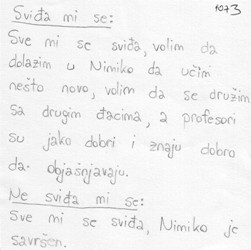 Sviđa mi se:
1073
Sve mi se sviđa, volim da
dolazim u Nimiko da učim
nešto novo, volim da se družim
sa drugim đacima, a profesori
su jako dobri i znaju dobro
da objašnjavaju.
Ne sviđa mi se:
Sve mi se sviđa, Nimiko je
savršen.